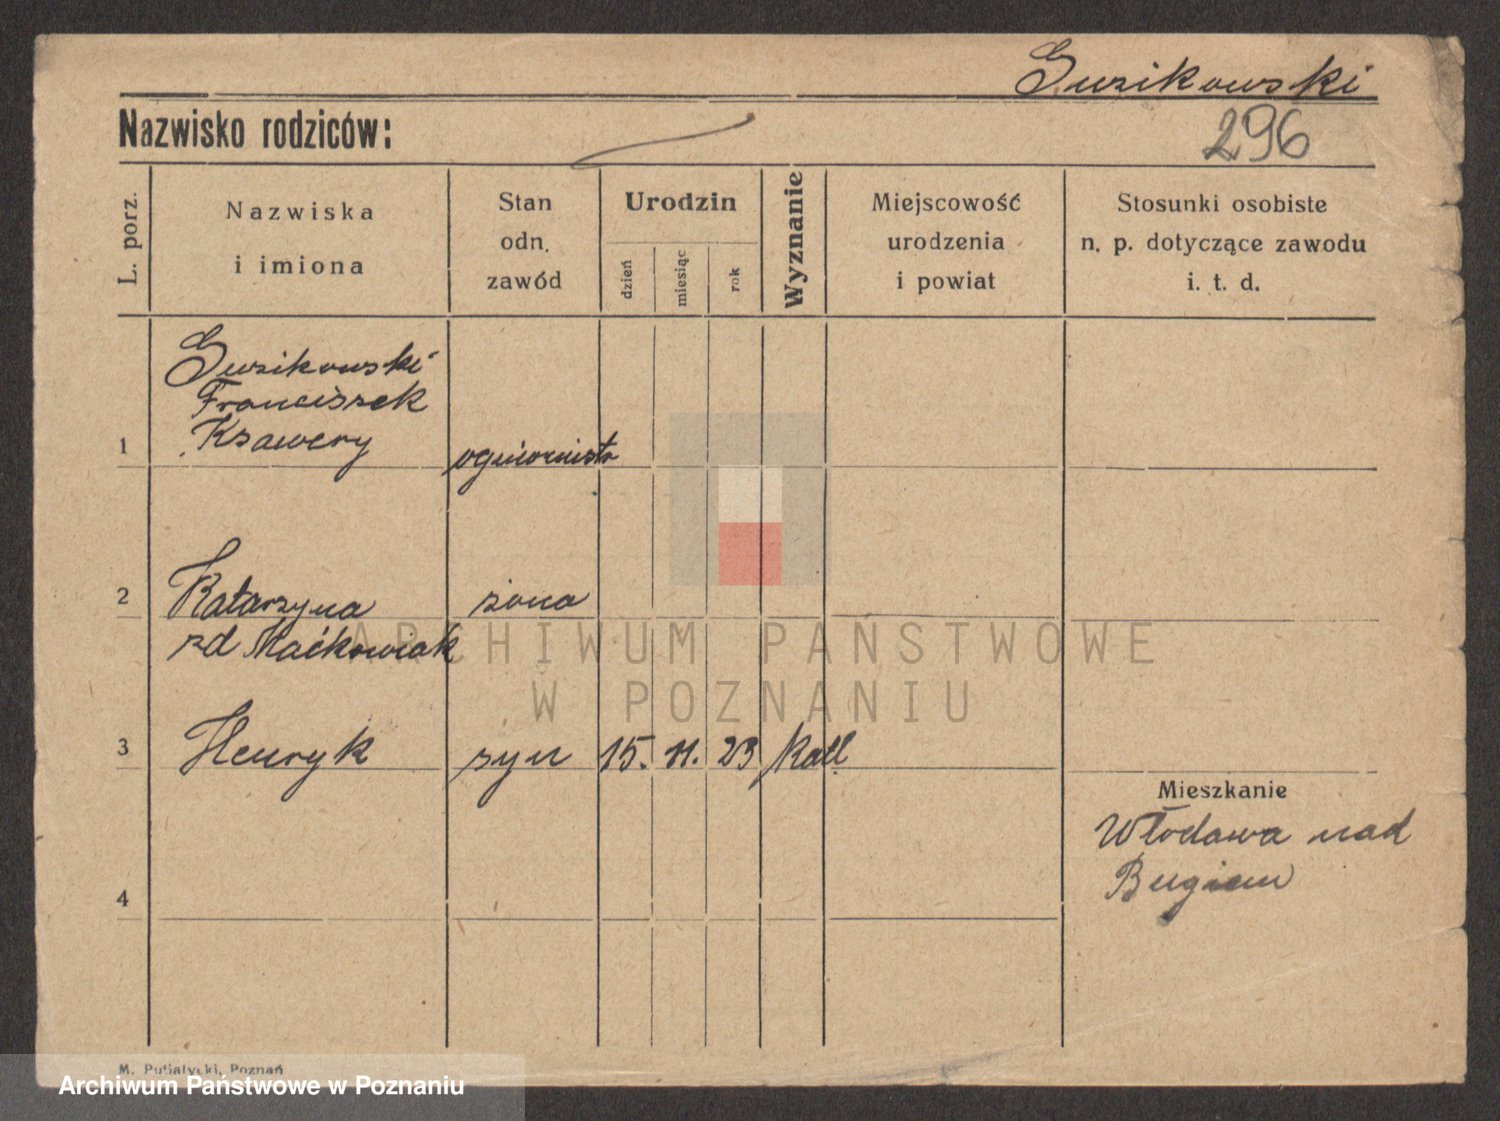 Guzikowski
Nazwisko rodziców:
296
L. porz.
Nazwiska
i imiona
Stan
odn.
zawód
Urodzin
dzień
miesiąc
rok
Wyznanie
Miejscowość
urodzenia
i powiat
Stosunki osobiste
n. p. dotyczące zawodu
i. t. d.
Guzikowski
Franciszek
1 Ksawery ogniomistr
2 Katarzyna żona
zd Maćkowiak
ARCHIWUM PAŃSTWOWE
W POZNANIU
3 Henryk syn 15. 11. 23 katl.
Mieszkanie
Włodawa nad
Bugiem
4
M. Putiatycki, Poznań
Archiwum Państwowe w Poznaniu